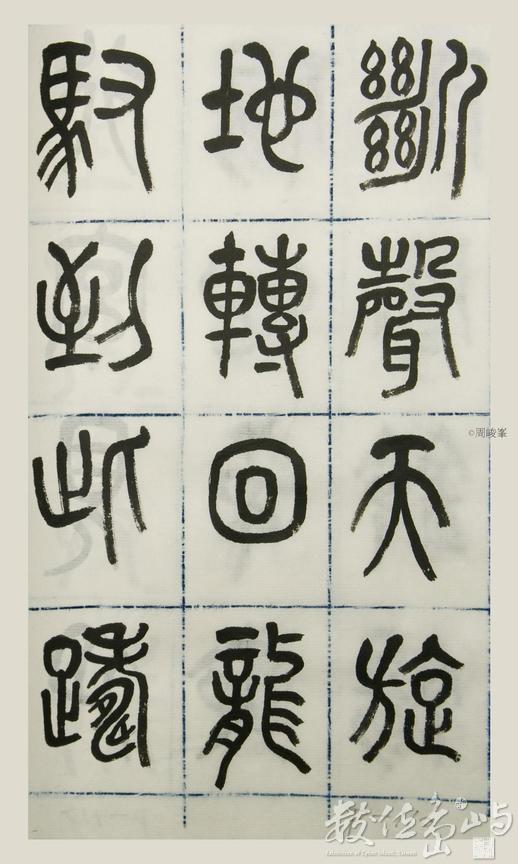 斷聲天旋
地轉回龍
馭到此躊
©周峻峯
數位島嶼